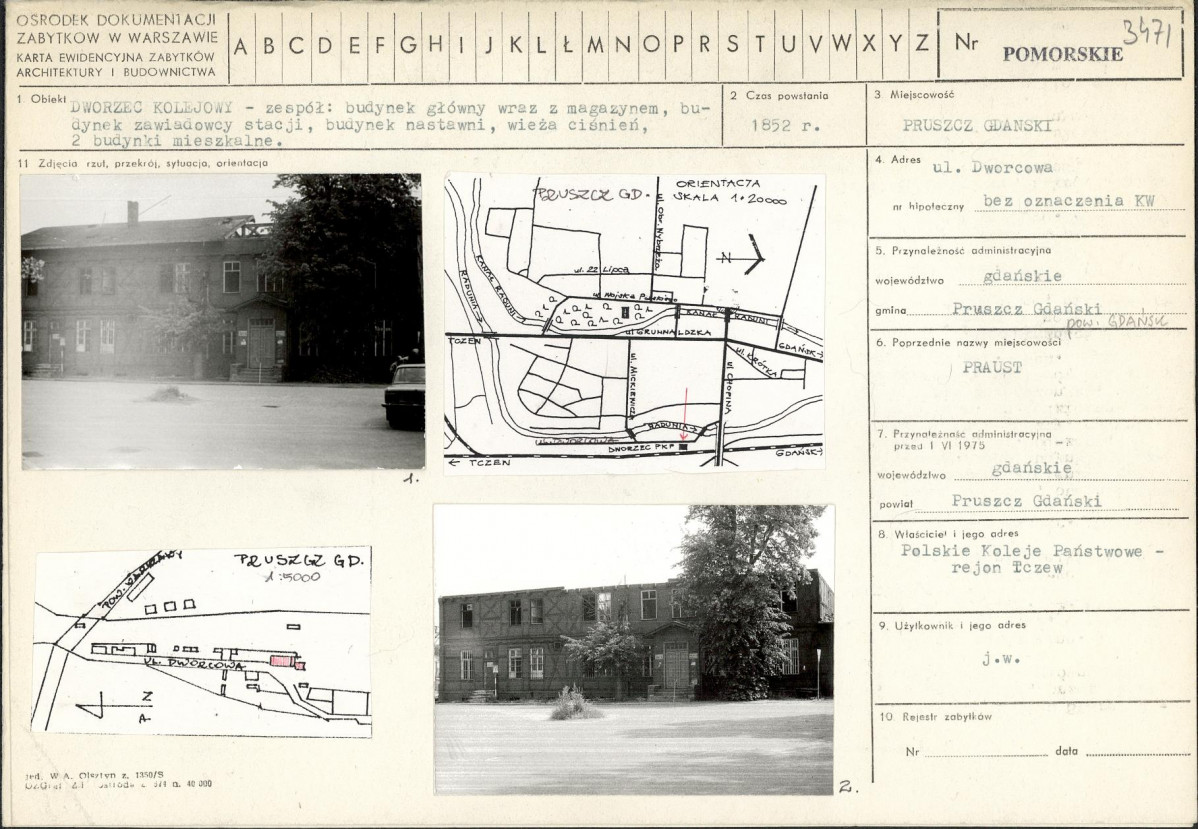 OŚRODEK DOKUMENTACJI
ZABYTKÓW W WARSZAWIE
KARTA EWIDENCYJNA ZABYTKÓW
ARCHITEKTURY I BUDOWNICTWA
A B C D E F G H I J K L Ł M N O P R S T U V W X Y Z
Nr
POMORSKIE
3471
1 Obiekt
DWORZEC KOLEJOWY - zespół: budynek główny wraz z magazynem, bu-
dynek zawiadowcy stacji, budynek nastawni, wieża ciśnień,
2 budynki mieszkalne.
2 Czas powstania
1852 r.
3 Miejscowość
PRUSZCZ GDAŃSKI
11 Zdjęcia rzut, przekrój, sytuacja, orientacja
4. Adres ul. Dworcowa
nr hipoteczny bez oznaczenia KW
5. Przynależność administracyjna
województwo gdańskie
gmina Pruszcz Gdański
pow. GDAŃSK
6. Poprzednie nazwy miejscowości
PRAUST
7. Przynależność administracyjna
przed I VI 1975
województwo gdańskie
powiat Pruszcz Gdański
8. Właściciel i jego adres
Polskie Koleje Państwowe -
rejon Tczew
9. Użytkownik i jego adres
j.w.
10. Rejestr zabytków
Nr data
PRUSZCZ GD.
ORIENTACJA
SKALA 1:20000
N
ul. 22 Lipca
ul. Wojska Polskiego
KANAŁ RADUNI
RADUNIA
KANAŁ RADUNI
ul. GRUNWALDZKA
TCZEW
GDAŃSK
ul. KRÓTKA
ul. MICKIEWICZA
ul. CHOPINA
RADUNIA
ul. DWORCOWA
DWORZEC PKP
GDAŃSK
← TCZEW
1.
PRUSZCZ GD.
1:5000
ul. DWORCOWA
Z
A
2.
W.A. Olsztyn z. 1350/S
n. 40 000